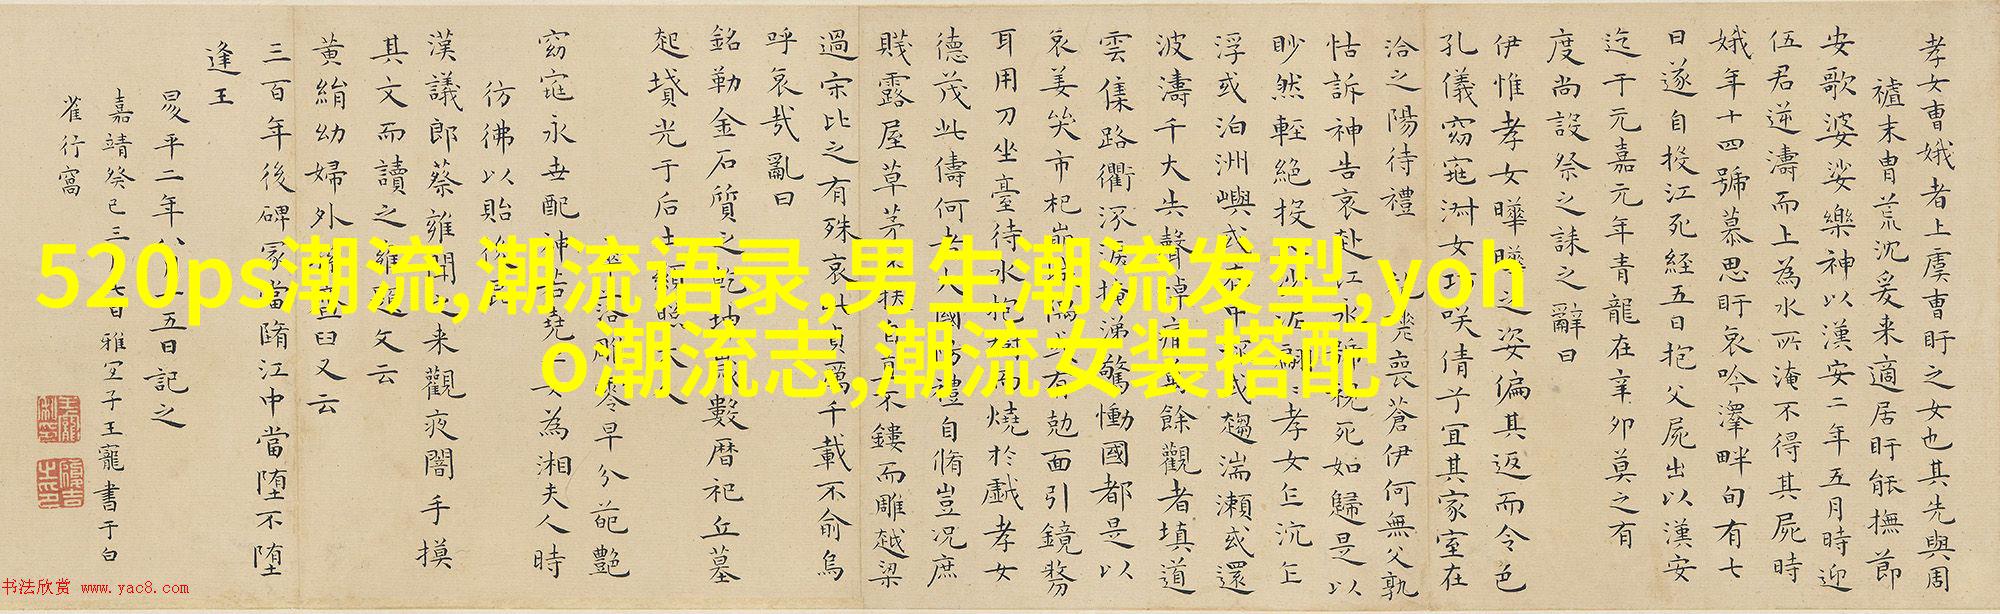 孝女曹娥者上虞曹盱之女也其先與周
禃末胄荒沈爰来適居盱能撫節
安歌婆娑樂神以漢安二年五月時迎
伍君逆濤而上為水所淹不得其屍時
娥年十四號慕思盱哀吟澤畔旬有七
日遂自投江死経五日抱父屍出以漢安
迄于元嘉元年青龍在辛卯莫之有
度尚設祭之誄之辭曰
伊惟孝女曄曄之姿偏其返而令色
孔儀窈窕淑女巧咲倩兮宜其家室在
洽之陽待禮
喪蒼伊何無父孰
怙訴神告哀赴江永
視死如歸是以
眇然輕絶投
孝女乍沉乍
浮或泊洲嶼或在中
或趨湍瀬或還
波濤千
失聲悼痛
餘觀者填道
雲集路衢
涙掩涕驚慟國都是以
哀姜哭市杞崩
或有剋面引鏡剺
耳用刀坐臺待水抱
而燒於戲孝女
德茂此儔何者大國防禮自脩豈况庶
賤露屋草茅不扶自直不鏤而雕越梁
過宋比之有殊哀此貞厲千載不俞烏
呼哀哉亂曰
銘勒金石質之乾坤
數暦祀丘墓
起墳光于后土顯照夫人
早分葩艶
窈窕永世配神若堯
女為湘夫人時
彷彿以貽後
漢議郎蔡雍聞之来觀夜闇手摸
其文而讀之雍題文云
黄絹幼婦外孫齏臼又云
三百年後碑冢當墮江中當堕不堕
逢王
昇平二年八月十五日記之
嘉靖癸巳三
日雅宜子王寵書于白
雀行窩
520ps潮流,潮流语录,男生潮流发型,yoh
o潮流志,潮流女装搭配
书法欣赏 www.yac8.com